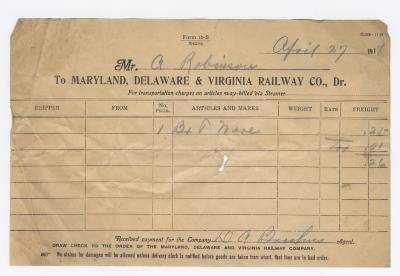 Form 15-S
April 27 191
Mr. A Robinson
To MARYLAND, DELAWARE & VIRGINIA RAILWAY CO., Dr.
For transportation charges on articles way-billed via Steamer
SHIPPER FROM No. Pkgs. ARTICLES AND MARKS WEIGHT RATE FREIGHT
1 Bx T Ware .25
.01
.26
Received payment for the Company, D A Agent.
DRAW CHECK TO THE ORDER OF THE MARYLAND, DELAWARE AND VIRGINIA RAILWAY COMPANY.
No claims for damages will be allowed unless delivery clerk is notified before goods are taken from wharf, that they are in bad order.